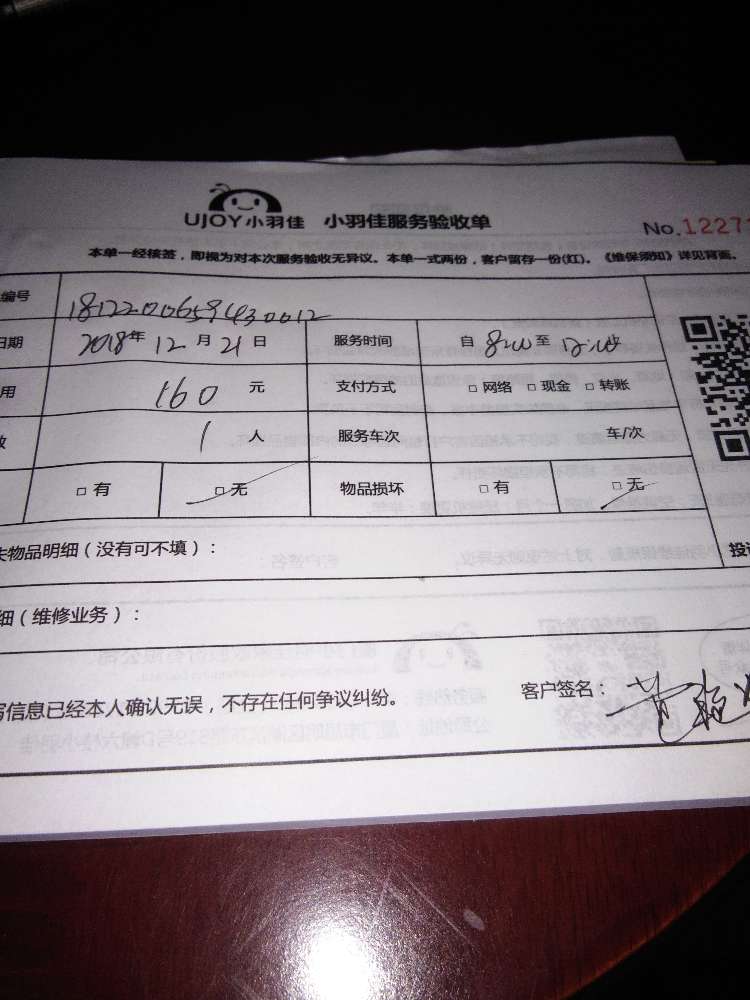 UJOY小羽佳 小羽佳服务验收单
No.1227
本单一经核签，即视为对本次服务验收无异议。本单一式两份，客户留存一份(红)。《维保须知》详见背面。
编号 1812200659430012
日期 2018年 12 月 21 日 服务时间 自 8:00 至 12:00
用 160 元 支付方式 □ 网络 □ 现金 □ 转账
数 1 人 服务车次 车/次
□ 有 □ 无 物品损坏 □ 有 □ 无
失物品明细（没有可不填）：
投诉
细（维修业务）：
写信息已经本人确认无误，不存在任何争议纠纷。 客户签名：